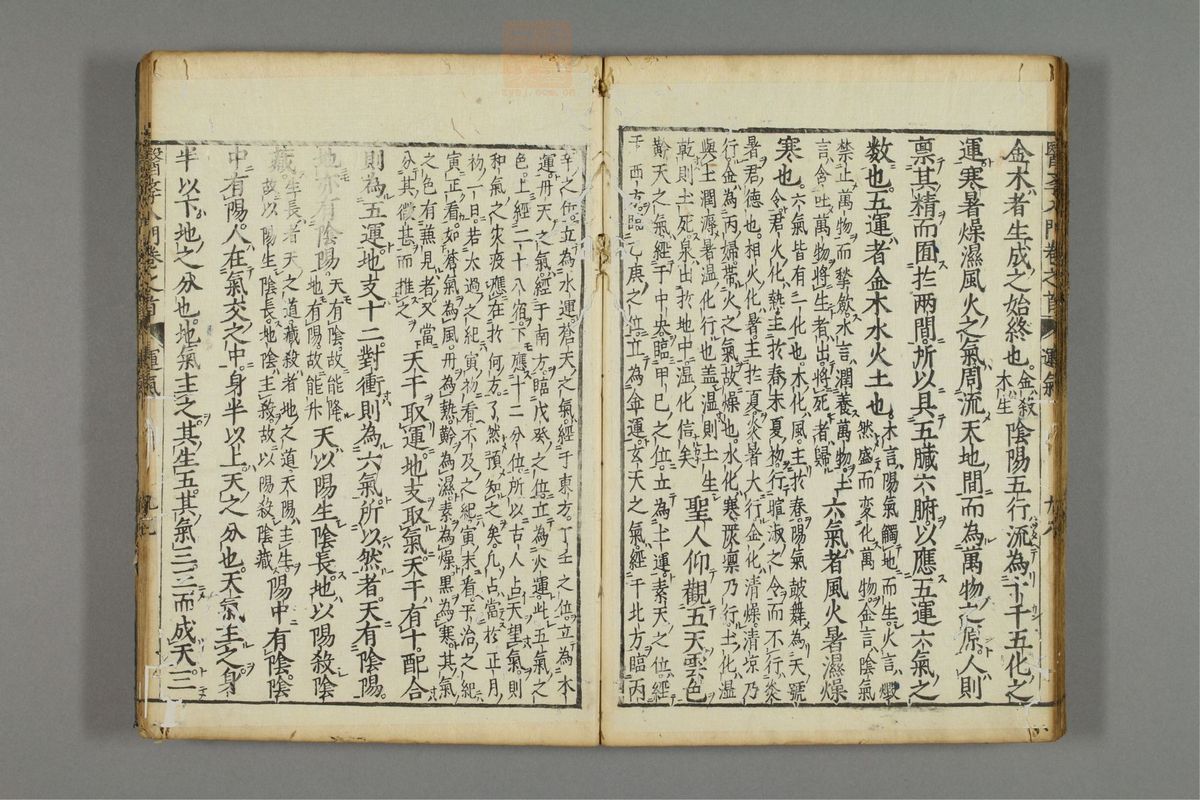 金木者生成之始終也金木生殺陰陽五行流為十干五化之
運寒暑燥濕風火之氣周流天地間而為萬物之原人則
禀其精而囿於兩間所以具五臟六腑以應五運六氣之
数也五運者金木水火土也木言陽氣觸地而生火言燬然盛而變化萬物金言陰氣
禁止萬物而揫斂水言潤養萬物土言含吐萬物將生者出將死者歸六氣者風火暑濕燥
寒也六氣皆有一化也木化風主於春陽氣鼓舞為天號令君火化熱主於春末夏初行暄淑之令而不行炎
暑君德也相火化暑主於夏炎暑大行金化清燥清凉乃行金為丙婦帶火之氣故燥也水化寒嚴凛乃行土化濕
與土潤溽暑温化行也盖温則土生乾則土死泉出於地中湿化信矣聖人仰觀五天雲色
黅天之氣經于中央臨甲己之位立為土運素天之氣經于西方臨乙庚之位立為金運玄天之氣經于北方臨丙
辛之位立為水運蒼天之氣經于東方丁壬之位立為木運丹天之氣經于南方臨戊癸之位立為火運此五氣之
色上經二十八宿下應十二分位所以古人占天望氣則和氣之灾疫應在於何方了然預知之矣凡占當於正月
初一日若太過之紀寅初看不及之紀寅末看平治之紀寅正看如蒼氣為風丹為熱黅為濕素為燥黑為寒其氣
之色有兼見者又當分其微甚而推之天干取運地支取氣天干有十配合
則為五運地支十二對衝則為六氣所以然者天有陰陽
地亦有陰陽天有陰故能降地有陽故能升天以陽生陰長地以陽殺陰
藏生長者天之道藏殺者地之道天陽主生故以陽生陰長地陰主殺故以陽殺陰藏陽中有陰陰
中有陽人在氣交之中身半以上天之分也天氣主之身
半以下地之分也地氣主之其生五其氣三三而成天三
醫學入門卷之首 運氣